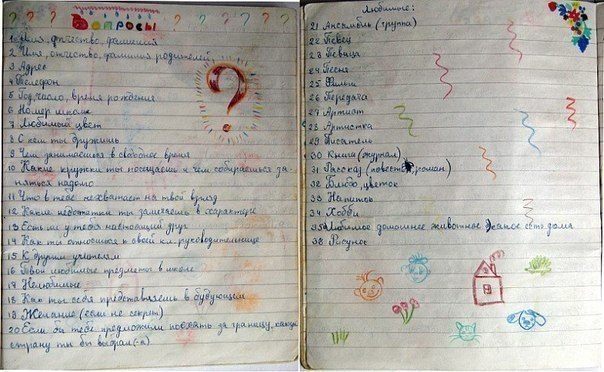 Вопросы
1 Имя, отчество, фамилия
2 Имя, отчество, фамилия родителей
3 Адрес
4 Телефон
5 Год, число, время рождения
6 Номер школы
7 Любимый цвет
8 С кем ты дружишь
9 Чем занимаешься в свободное время
10 Какие кружки ты посещаешь и чем собираешься за-
няться надолго
11 Что в тебе нехватает на твой взгляд
12 Какие недостатки ты замечаешь в характере
13 Есть ли у тебя настоящий друг
14 Как ты относишься к своей кл. руководительнице
15 К другим учителям
16 Твои любимые предметы в школе
17 Нелюбимые
18 Как ты себя представляешь в будующем
19 Желание (если не секрет)
20 Если бы тебе предложили поехать за границу, какую
страну ты бы выбрал(-а)
Любимые:
21 Ансамбль (группа)
22 Певец
23 Певица
24 Песня
25 Фильм
26 Передача
27 Артист
28 Артистка
29 Писатель
30 Книга (журнал)
31 Рассказ (повесть, роман)
32 Блюдо, цветок
33 Напиток
34 Хобби
35 Любимое домашнее животное какое есть дома
38 Рисунок